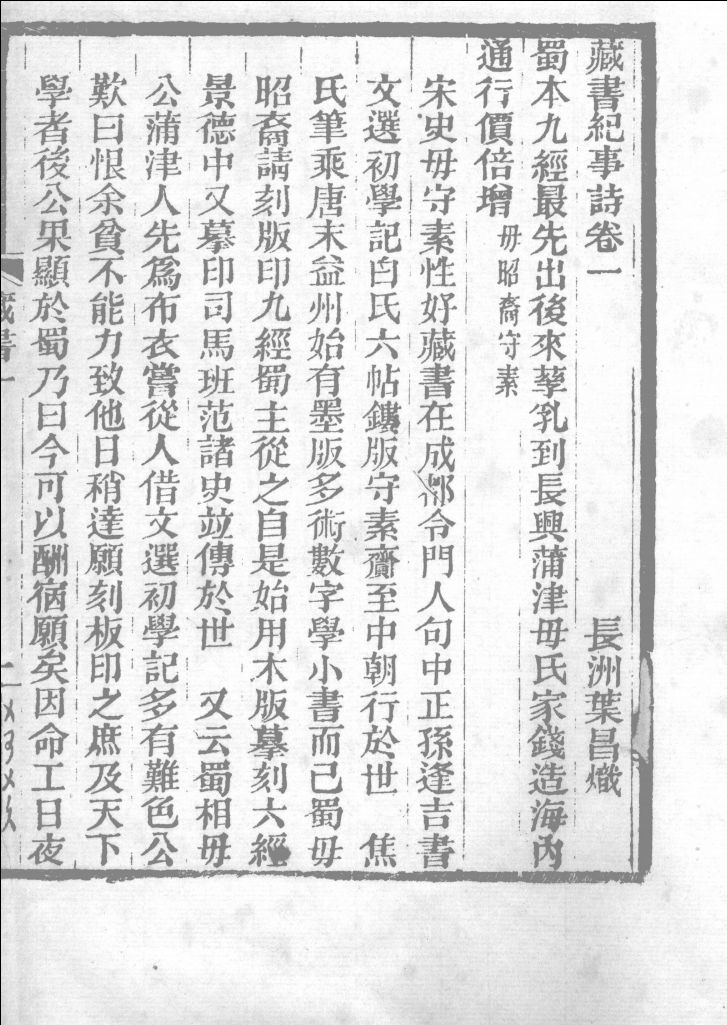 藏書紀事詩卷一
長洲葉昌熾
蜀本九經最先出後來孳乳到長興蒲津毋氏家錢造海內
通行價倍增 毋昭裔 守素
宋史毋守素性好藏書在成都令門人句中正孫逢吉書
文選初學記白氏六帖鏤版守素齎至中朝行於世 焦
氏筆乘唐末益州始有墨版多術數字學小書而已蜀毋
昭裔請刻版印九經蜀主從之自是始用木版摹刻六經
景德中又摹印司馬班范諸史並傳於世 又云蜀相毋
公蒲津人先爲布衣嘗從人借文選初學記多有難色公
歎曰恨余貧不能力致他日稍達願刻板印之庶及天下
學者後公果顯於蜀乃曰今可以酬宿願矣因命工日夜
藏書一